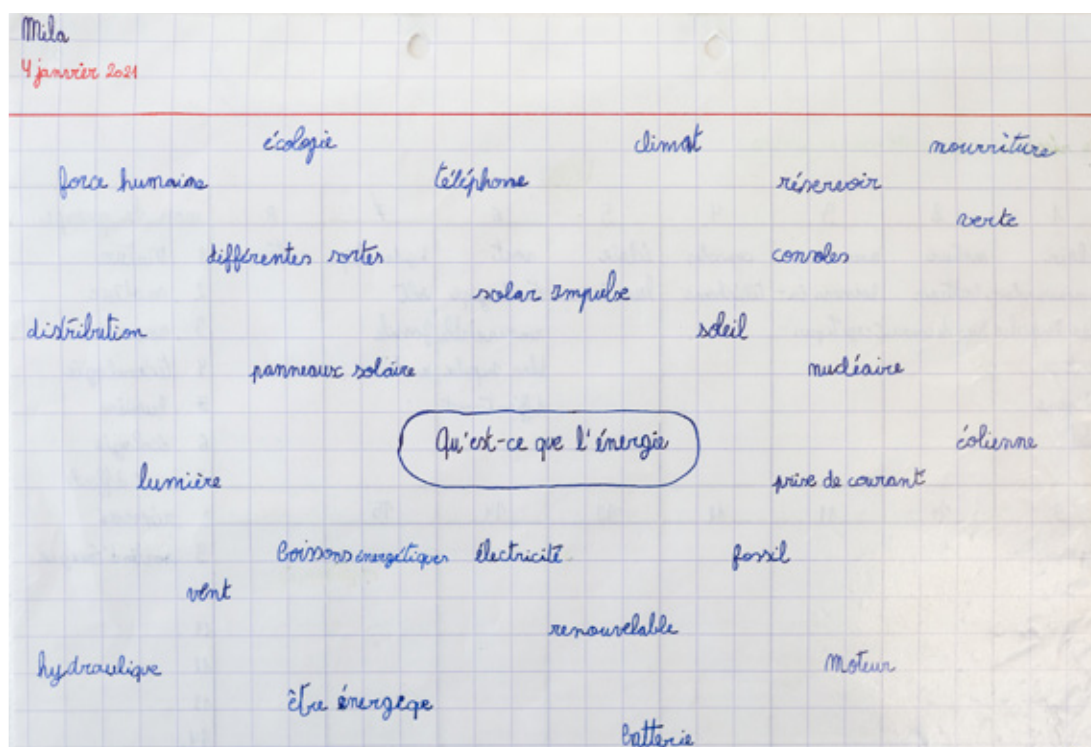 Mila
4 janvier 2021
écologie
climat
nourriture
force humaine
téléphone
réservoir
verte
différentes sortes
consoles
solar Impulse
distribution
soleil
panneaux solaire
nucléaire
Qu'est-ce que l'énergie
éolienne
lumière
prise de courant
boissons énergétiques
électricité
fossil
vent
renouvelable
hydraulique
Moteur
être énergéqe
batterie